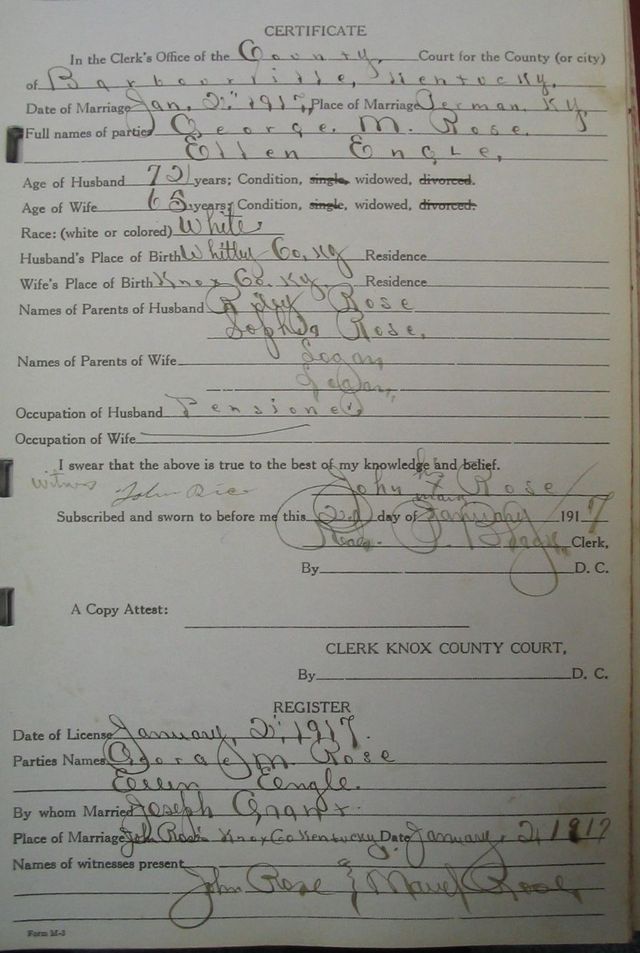 CERTIFICATE
In the Clerk's Office of the County, Court for the County (or city)
of Barbourville, Kentucky,
Date of Marriage Jan, 2" 1917, Place of Marriage German, Ky,
Full names of parties George. M. Rose.
Ellen Engle,
Age of Husband 72 years; Condition, single, widowed, divorced.
Age of Wife 65 years; Condition, single, widowed, divorced.
Race: (white or colored) White
Husband's Place of Birth Whitly Co, Ky Residence
Wife's Place of Birth Knox Co. Ky. Residence
Names of Parents of Husband Rose
Sophia Rose,
Names of Parents of Wife Logan
Logan,
Occupation of Husband Pensioner
Occupation of Wife
I swear that the above is true to the best of my knowledge and belief.
his
witness John Rice John X Rose
mark
Subscribed and sworn to before me this 2nd day of January 1917
Clerk,
By D. C.
A Copy Attest:
CLERK KNOX COUNTY COURT,
By D. C.
REGISTER
Date of License January, 2", 1917.
Parties Names George M. Rose
Engle.
By whom Married Joseph Grant.
Place of Marriage John Rose Knox Co Kentucky Date January, 2, 1917
Names of witnesses present
John Rose & Rose,
Form M-3